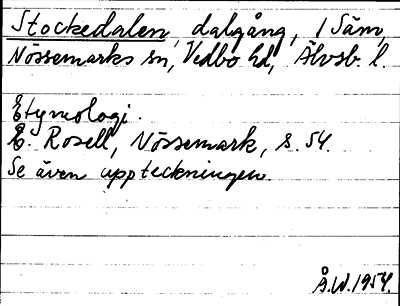 Stockedalen, dalgång, 1 Säm,
Nössemarks sn, Vedbo hd, Älvsb. l.
Etymologi.
E. Rosell, Nössemark, s. 54.
Se även uppteckningen.
Å.W. 1954.